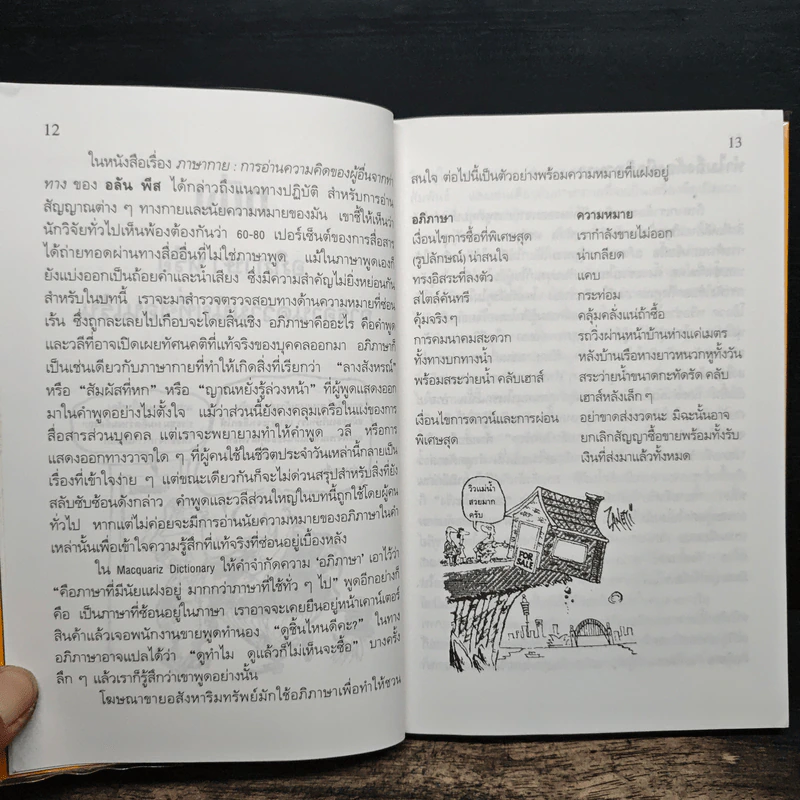 12
ในหนังสือเรื่อง ภาษากาย : การอ่านความคิดของผู้อื่นจากท่า
ทาง ของ อลัน พีส ได้กล่าวถึงแนวทางปฏิบัติ สำหรับการอ่าน
สัญญาณต่าง ๆ ทางกายและนัยความหมายของมัน เขาชี้ให้เห็นว่า
นักวิจัยทั่วไปเห็นพ้องต้องกันว่า 60-80 เปอร์เซ็นต์ของการสื่อสาร
ได้ถ่ายทอดผ่านทางสื่ออื่นที่ไม่ใช่ภาษาพูด แม้ในภาษาพูดเองก็
ยังแบ่งออกเป็นถ้อยคำและน้ำเสียง ซึ่งมีความสำคัญไม่ยิ่งหย่อนกัน
สำหรับในบทนี้ เราจะมาสำรวจตรวจสอบทางด้านความหมายที่ซ่อน
เร้น ซึ่งถูกละเลยไปเกือบจะโดยสิ้นเชิง อภิภาษาคืออะไร คือคำพูด
และวลีที่อาจเปิดเผยทัศนคติที่แท้จริงของบุคคลออกมา อภิภาษาก็
เป็นเช่นเดียวกับภาษากายที่ทำให้เกิดสิ่งที่เรียกว่า “ลางสังหรณ์”
หรือ “สัมผัสที่หก” หรือ “ญาณหยั่งรู้ล่วงหน้า” ที่ผู้พูดแสดงออก
มาในคำพูดอย่างไม่ตั้งใจ แม้ว่าส่วนนี้ยังคงคลุมเครือในแง่ของการ
สื่อสารส่วนบุคคล แต่เราจะพยายามทำให้คำพูด วลี หรือการ
แสดงออกทางวาจาใด ๆ ที่ผู้คนใช้ในชีวิตประจำวันเหล่านี้กลายเป็น
เรื่องที่เข้าใจง่าย ๆ แต่ขณะเดียวกันก็จะไม่ด่วนสรุปสำหรับสิ่งที่ยัง
สลับซับซ้อนดังกล่าว คำพูดและวลีส่วนใหญ่ในบทนี้ถูกใช้โดยผู้คน
ทั่วไป หากแต่ไม่ค่อยจะมีการอ่านนัยความหมายของอภิภาษาในคำ
เหล่านั้นเพื่อเข้าใจความรู้สึกที่แท้จริงที่ซ่อนอยู่เบื้องหลัง
ใน Macquariz Dictionary ให้คำจำกัดความ ‘อภิภาษา’ เอาไว้ว่า
“คือภาษาที่มีนัยแฝงอยู่ มากกว่าภาษาที่ใช้ทั่ว ๆ ไป” พูดอีกอย่างก็
คือ เป็นภาษาที่ซ้อนอยู่ในภาษา เราอาจจะเคยยืนอยู่หน้าเคาน์เตอร์
สินค้าแล้วเจอพนักงานขายพูดทำนอง “ดูชิ้นไหนดีคะ?” ในทาง
อภิภาษาอาจแปลได้ว่า “ดูทำไม ดูแล้วก็ไม่เห็นจะซื้อ” บางครั้ง
ลึก ๆ แล้วเราก็รู้สึกว่าเขาพูดอย่างนั้น
โฆษณาขายอสังหาริมทรัพย์มักใช้อภิภาษาเพื่อทำให้ชวน
13
สนใจ ต่อไปนี้เป็นตัวอย่างพร้อมความหมายที่แฝงอยู่
อภิภาษา ความหมาย
เงื่อนไขการซื้อที่พิเศษสุด เรากำลังขายไม่ออก
(รูปลักษณ์) น่าสนใจ น่าเกลียด
ทรงอิสระที่ลงตัว แคบ
สไตล์คันทรี กระท่อม
คุ้มจริง ๆ คลุ้มคลั่งแน่ถ้าซื้อ
การคมนาคมสะดวก รถวิ่งผ่านหน้าบ้านห่างแค่เมตร
ทั้งทางบกทางน้ำ หลังบ้านเรือหางยาวหนวกหูทั้งวัน
พร้อมสระว่ายน้ำ คลับเฮาส์ สระว่ายน้ำขนาดกะทัดรัด คลับ
เฮาส์หลังเล็ก ๆ
เงื่อนไขการดาวน์และการผ่อน อย่าขาดส่งงวดนะ มิฉะนั้นอาจ
พิเศษสุด ยกเลิกสัญญาซื้อขายพร้อมทั้งรับ
เงินที่ส่งมาแล้วทั้งหมด
วิวแม่น้ำ
สวยมาก
ครับ
FOR
SALE